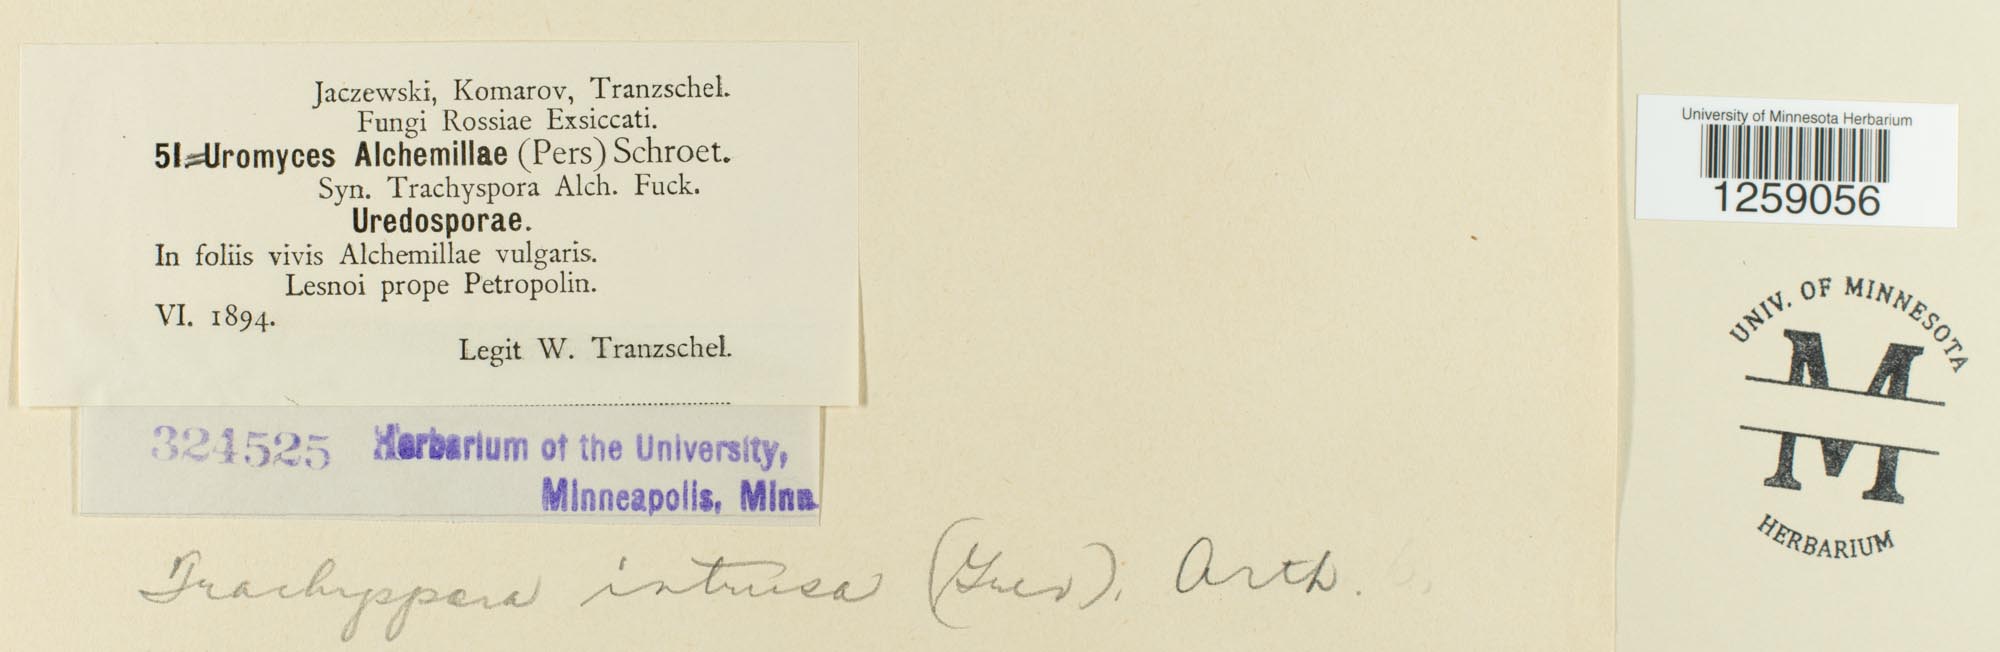 Jaczewski, Komarov, Tranzschel.
Fungi Rossiae Exsiccati.
51. Uromyces Alchemillae (Pers) Schroet.
Syn. Trachyspora Alch. Fuck.
Uredosporae.
In foliis vivis Alchemillae vulgaris.
Lesnoi prope Petropolin.
VI. 1894.
Legit W. Tranzschel.
324525 Herbarium of the University,
Minneapolis, Minn.
Trachyspora intrusa (Grev). Arth.
University of Minnesota Herbarium
1259056
UNIV. OF MINNESOTA
M
HERBARIUM